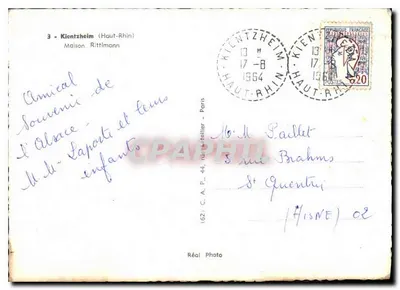 3 - Kientzheim (Haut-Rhin)
Maison Rittimann
KIENTZHEIM
13 H
17 - 8
1964
HAUT-RHIN
KIENTZHEIM
13
17 - 8
196
HAUT-RHIN
0,20
Amical
Souvenir de
l'Alsace
M Mme Laporte et leurs
enfants
CPAPHIL
162 - C. A. P., 44, - Paris
Mr M Paillet
3 rue Brahms
St Quentin
(AISNE) 02
Réal Photo